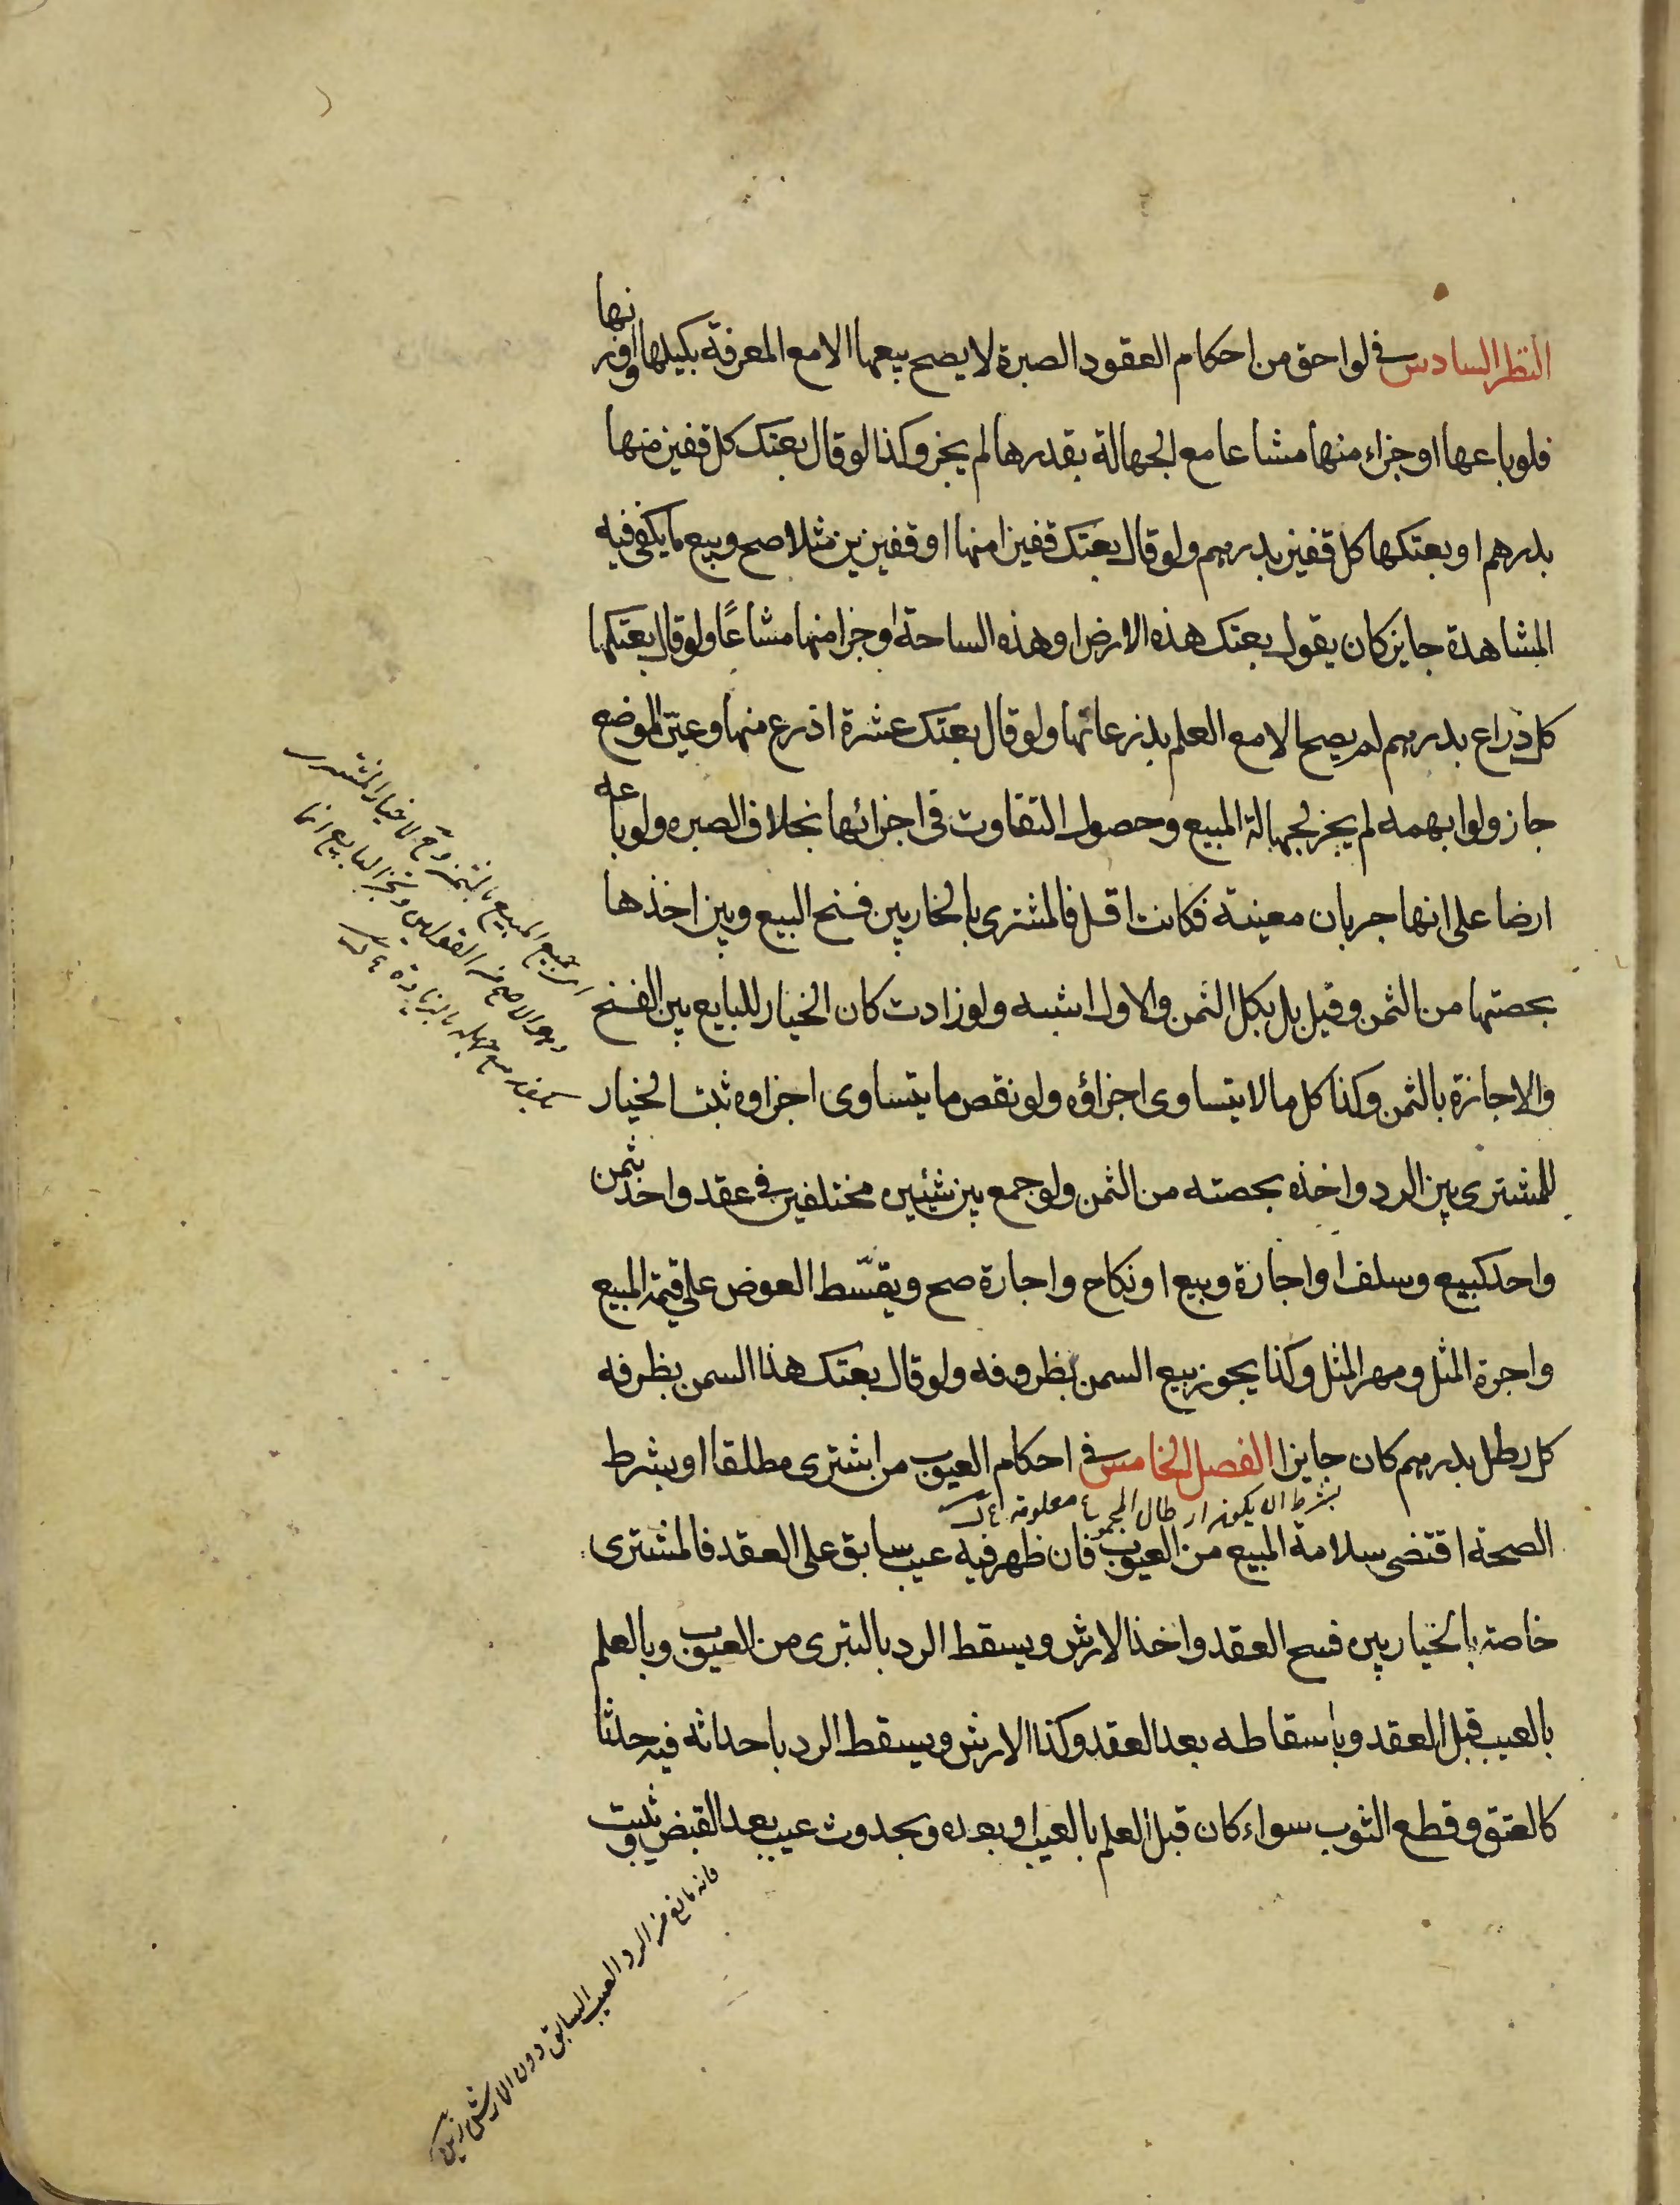 النظر السادس في لواحق من احكام العقود الصبرة لا يصح بيعها الا مع المعرفة بكيلها او وزنها
فلو باعها او جزاء منها مشاعا مع الجهالة بقدرها لم يجز وكذا لو قال بعتك كل قفيز منها
بدرهم او بعتكها كل قفيز بدرهم ولو قال بعتك قفيزا منها او قفيزين مثلا صح وبيع ما يكفى فيه
المشاهدة جايز كان يقول بعتك هذه الارض او هذه الساحة او جزا منها مشاعًا ولو قال بعتكها
كل ذراع بدرهم لم يصح الا مع العلم بذرعانها ولو قال بعتك عشرة اذرع منها وعيّن الموضع
جاز ولو ابهمه لم يجز لجهالة المبيع وحصول التفاوت فى اجزائها بخلاف الصبره ولو باعه
ارضا على انها جربان معينة فكانت اقل فالمشترى بالخار بين فسخ البيع وبين اخذها
بحصتها من الثمن وقيل بل بكل الثمن والاول اشبه ولو زادت كان الخيار للبايع بين الفسخ
والاجازة بالثمن وكذا كل ما لا يتساوى اجزاؤه ولو نقص ما يتساوى اجزاوه ثبت الخيار
للمشترى بين الرد واخذه بحصته من الثمن ولو جمع بين شيئين مختلفين في عقد واحد بثمن
واحد كبيع وسلف او اجارة وبيع او نكاح واجارة صح ويقسّط العوض على قيمة المبيع
واجرة المثل ومهر المثل وكذا يجوز بيع السمن بظروفه ولو قال بعتك هذا السمن بظرفه
كل رطل بدرهم كان جايزا الفصل الخامس في احكام العيوب من اشترى مطلقا او بشرط
بشرط ان يكون ارطال المجموع معلومة
الصحة اقتضى سلامة المبيع من العيوب فان ظهر فيه عيب سابق على العقد فالمشترى
خاصة بالخيار بين فسخ العقد واخذ الارش ويسقط الرد بالتبرى من العيوب وبالعلم
بالعيب قبل العقد وباسقاطه بعد العقد وكذا الارش ويسقط الرد باحداثه فيه حدثا
كالعتق وقطع الثوب سواء كان قبل العلم بالعيب او بعده وبحدوث عيب بعد القبض ويثبت
جميع المبيع بالثمن لا خيار للمشترى
الاصح من القولين البايع انما
مع جهله بالزيادة
فانه مانع من الرد العيب السابق دون الارش